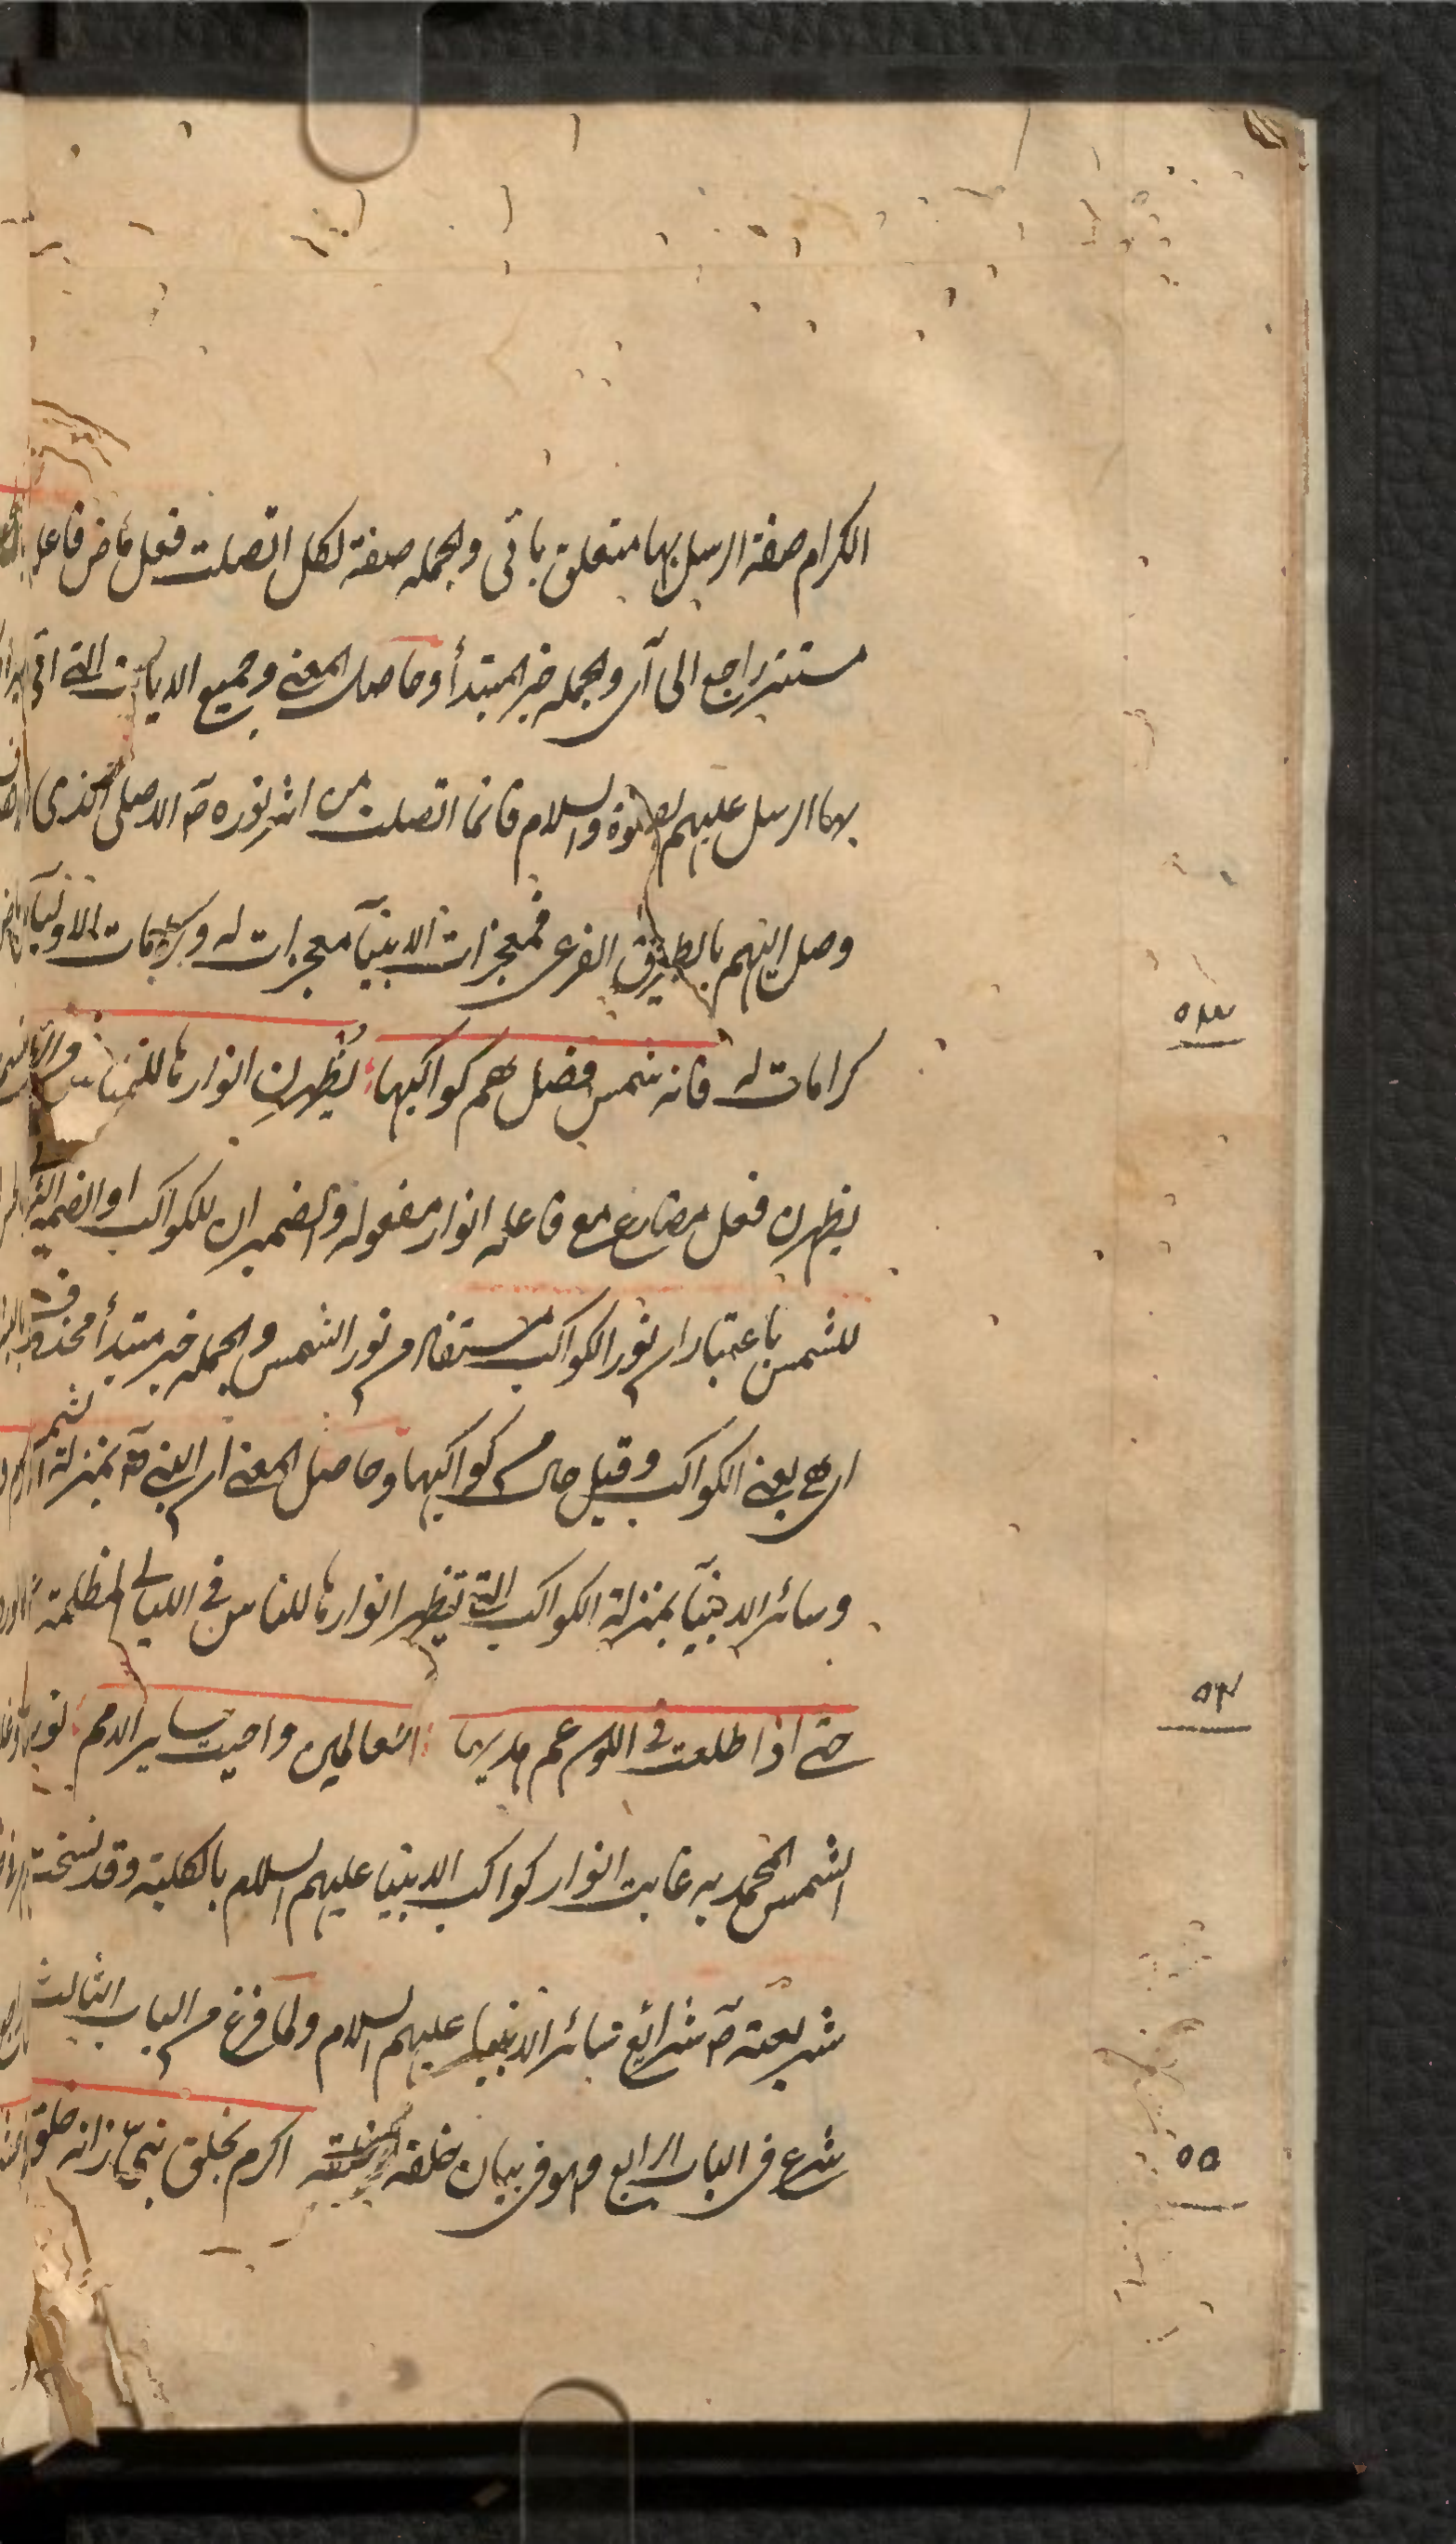 الكرام صفة الرسل بها متعلق باتى والجمله صفة لكل اتصلت فعل ماض فاعله
مستتر راجع الى آى والجمله خبر المبتدأ وحاصل المعنى وجميع الايات التى اتى
بها الرسل عليهم الصلوة والسلام فانما اتصلت من اثر نوره صم الاصلى الذى
وصل اليهم بالطريق الفرعى فمعجزات الانبيآ معجزات له وكرامات الاوليآ
كرامات له فانه شمس فضل هم كواكبها يُظهرنِ انوارها للناس فى
يظهرن فعل مضارع مع فاعله انوار مفعوله والضميران للكواكب او الضمير
للشمس باعتبار ان نور الكواكب مستفاد من نور الشمس والجمله خبر مبتدأ محذوف
اى هى يعنى الكواكب وقيل حال من كواكبها وحاصل المعنى ان النبى صم بمنزلة الشمس
وسائر الانبيآ بمنزلة الكواكب التى تظهر انوارها للناس فى الليالى المظلمة
حتى اذا طلعت فى الكون عم هديها العالمين واحيت ساير الامم
الشمس المحمديه غابت انوار كواكب الانبيا عليهم السلام بالكلية وقد نسخت
شريعته صم شرائع سائر الانبيا عليهم السلام ولما فرغ من الباب الثالث
شرع فى الباب الرابع وهو فى بيان خلقه اكرم بخلق نبىّ زانه خلق
٥٣
٥٤
٥٥